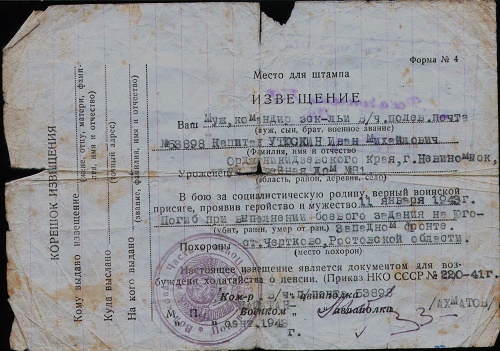 Форма № 4
Место для штампа
ИЗВЕЩЕНИЕ
Ваш муж, командир эск-льи в/ч полев. почта
(муж, сын, брат, военное звание)
№53898 Капитан УТЮСКИН Иван Михайлович
(Фамилия, имя и отчество)
Орджоникидзевского Края, г. Невиномыск,
Уроженец дом №81
(область, район, деревня, село)
В бою за социалистическую родину, верный воинской
присяге, проявив геройство и мужество 11 января 1943г.
Погиб при выполнении боевого задания на юго-
(убит, ранен, умер от ран) Западном фронте.
Похоронен ст. Чертково, Ростовской области.
(место похорон)
Настоящее извещение является документом для воз-
буждения ходатайства о пенсии. (Приказ НКО СССР № 220-41г.
Ком-р в/ч п/п 53898
авиаполка
/АХМАТОВ/
М. П. Военком авиаполка
194 г.
КОРЕШОК ИЗВЕЩЕНИЯ
Кому выдано извещение
имя и отчество)
Куда выслано
адрес)
На кого выдано
(звание, фамилия, имя и отчество)